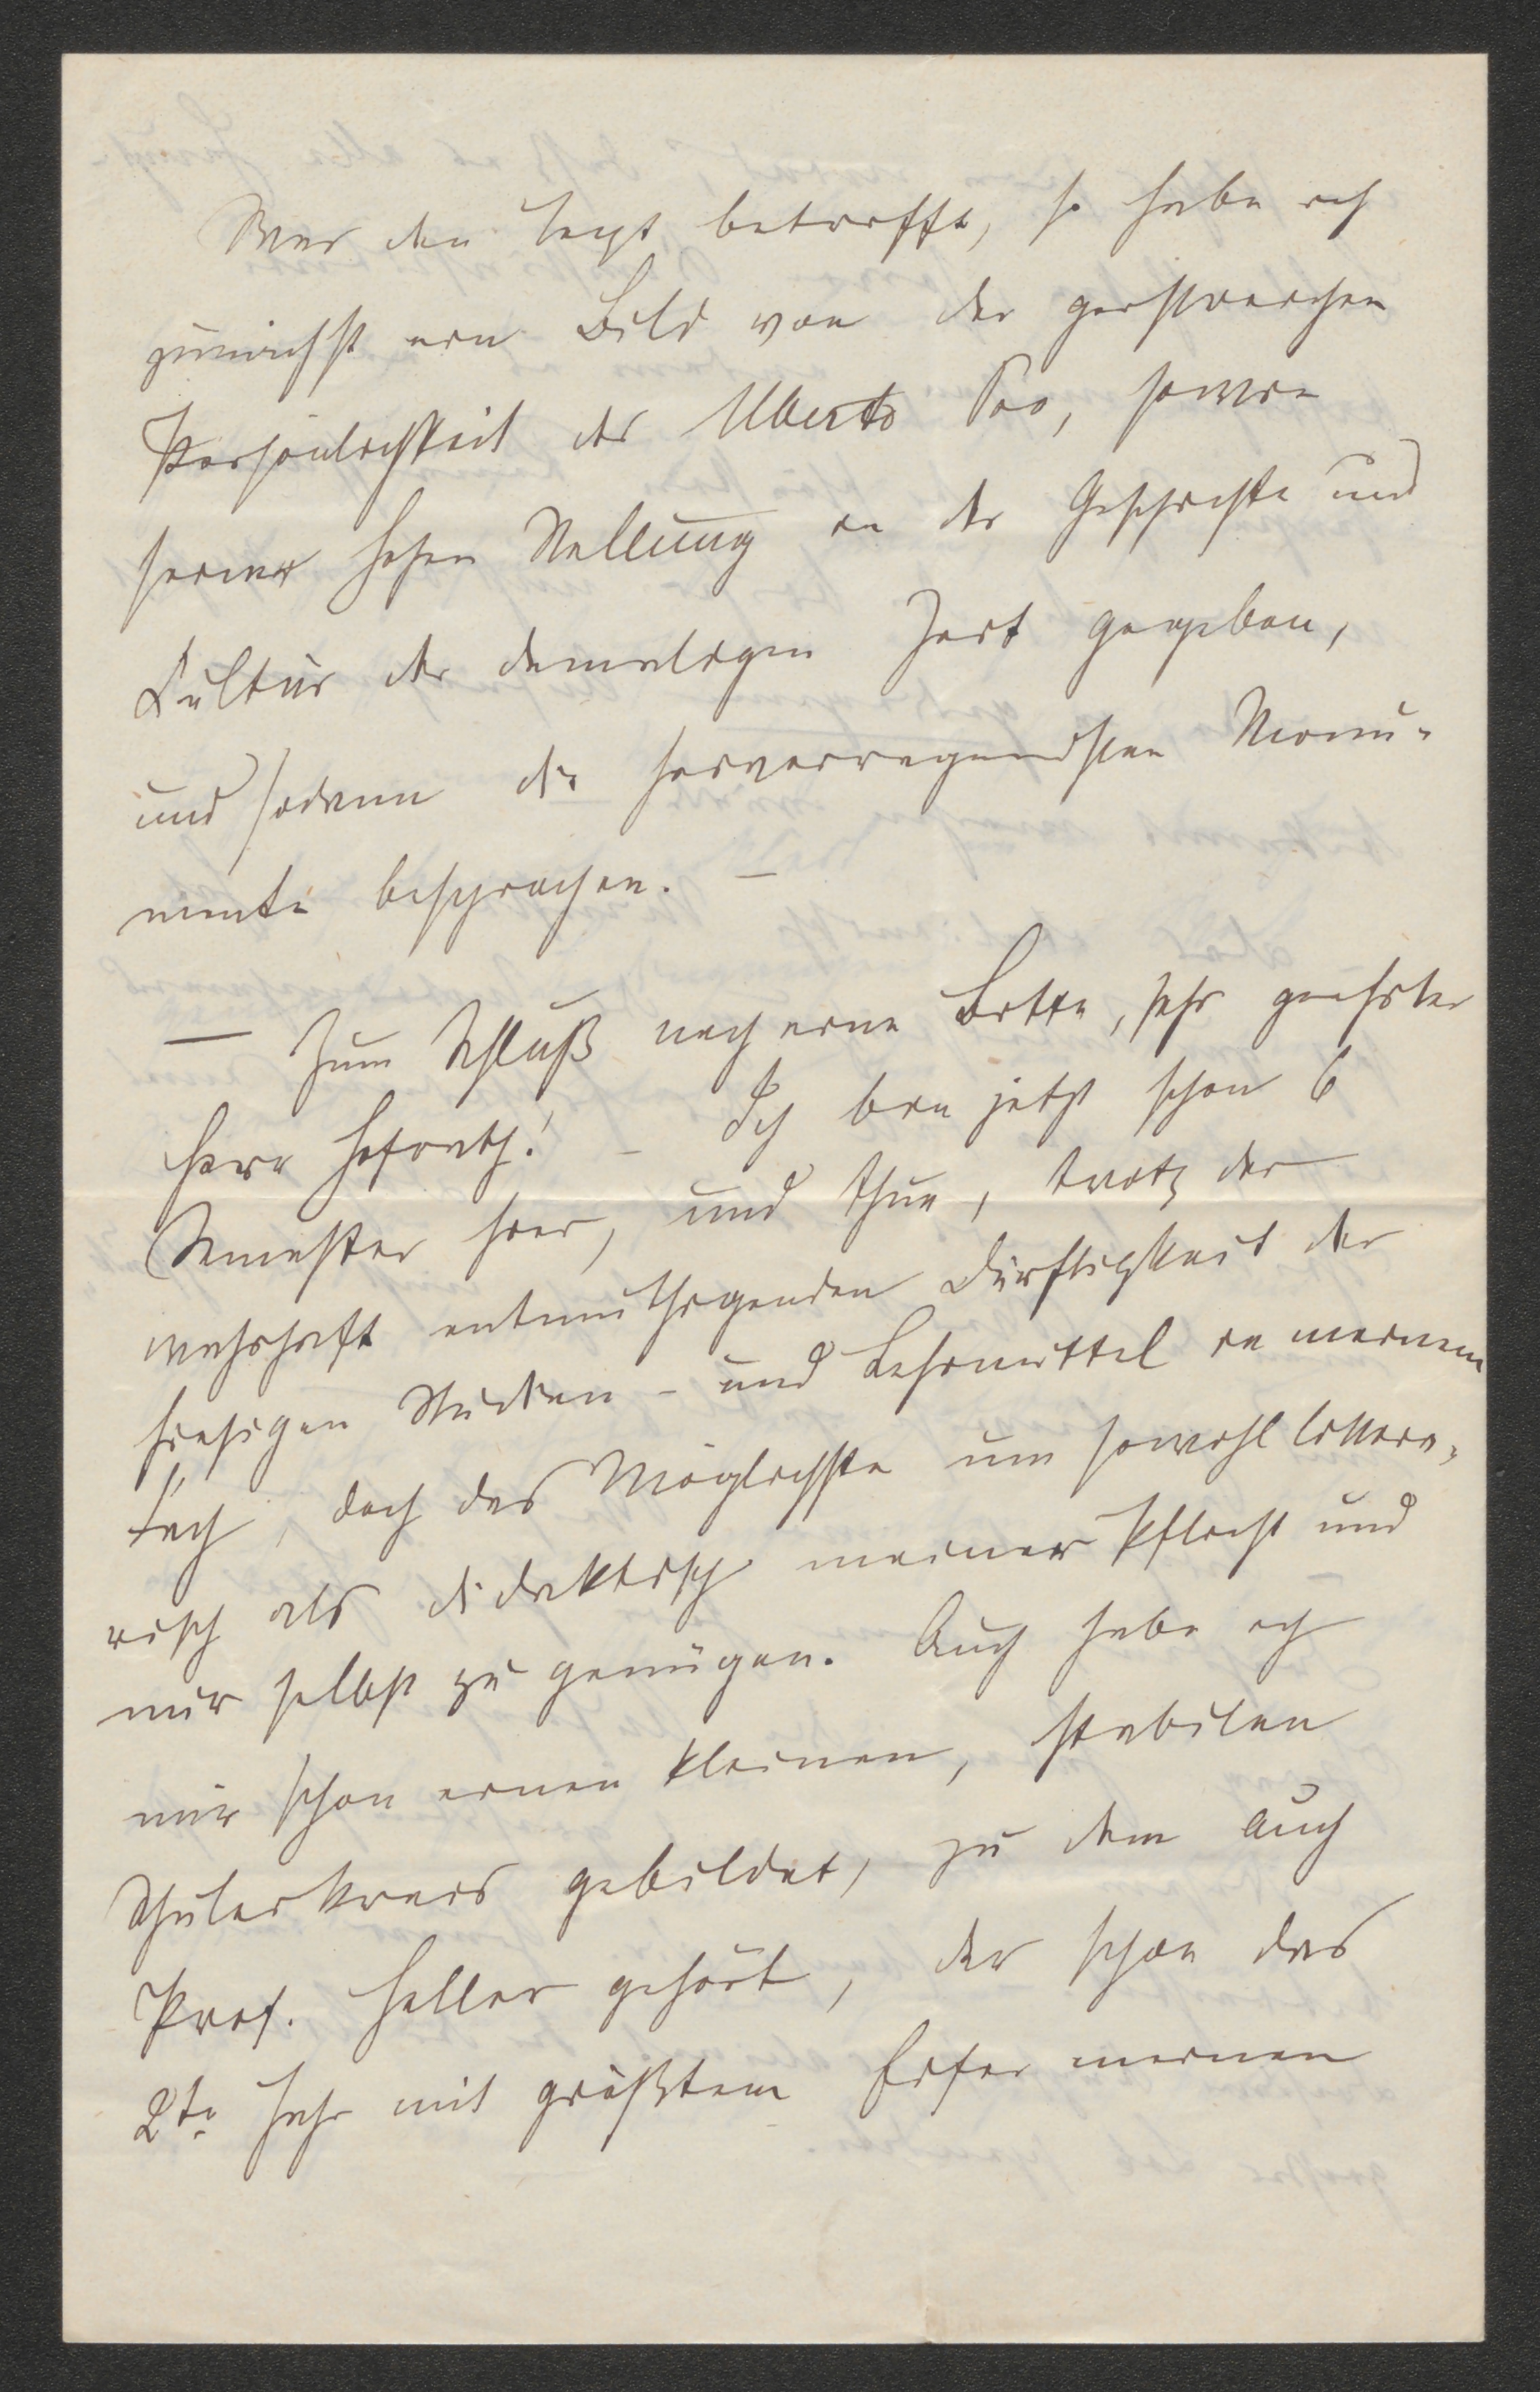 Was den Text betrifft, so habe ich
zunächst ein Bild von der geistreichen
Persönlichkeit des Uberto, sowie
seiner hohen Stellung in der Geschichte und
Cultur der damaligen Zeit gegeben,
und sodann die hervorragendsten Monu-
mente besprochen. –
— Zum Schluß noch eine Bitte, sehr geehrter
Herr Hofrath! – Ich bin jetzt schon 6
Semester hier, und thue, trotz der
wahrhaft entmuthigenden Dürftigkeit der
hiesigen Studien- und Lehrmittel in meinem
Fach, doch das Möglichste um sowohl littera-
risch als didaktisch meiner Pflicht und
mir selbst zu genügen. Auch habe ich
mir schon einen kleinen, stabilen
Schülerkreis gebildet, zu dem auch
Prof. Heller gehört, der schon das
2te Jahr mit größtem Eifer meinen